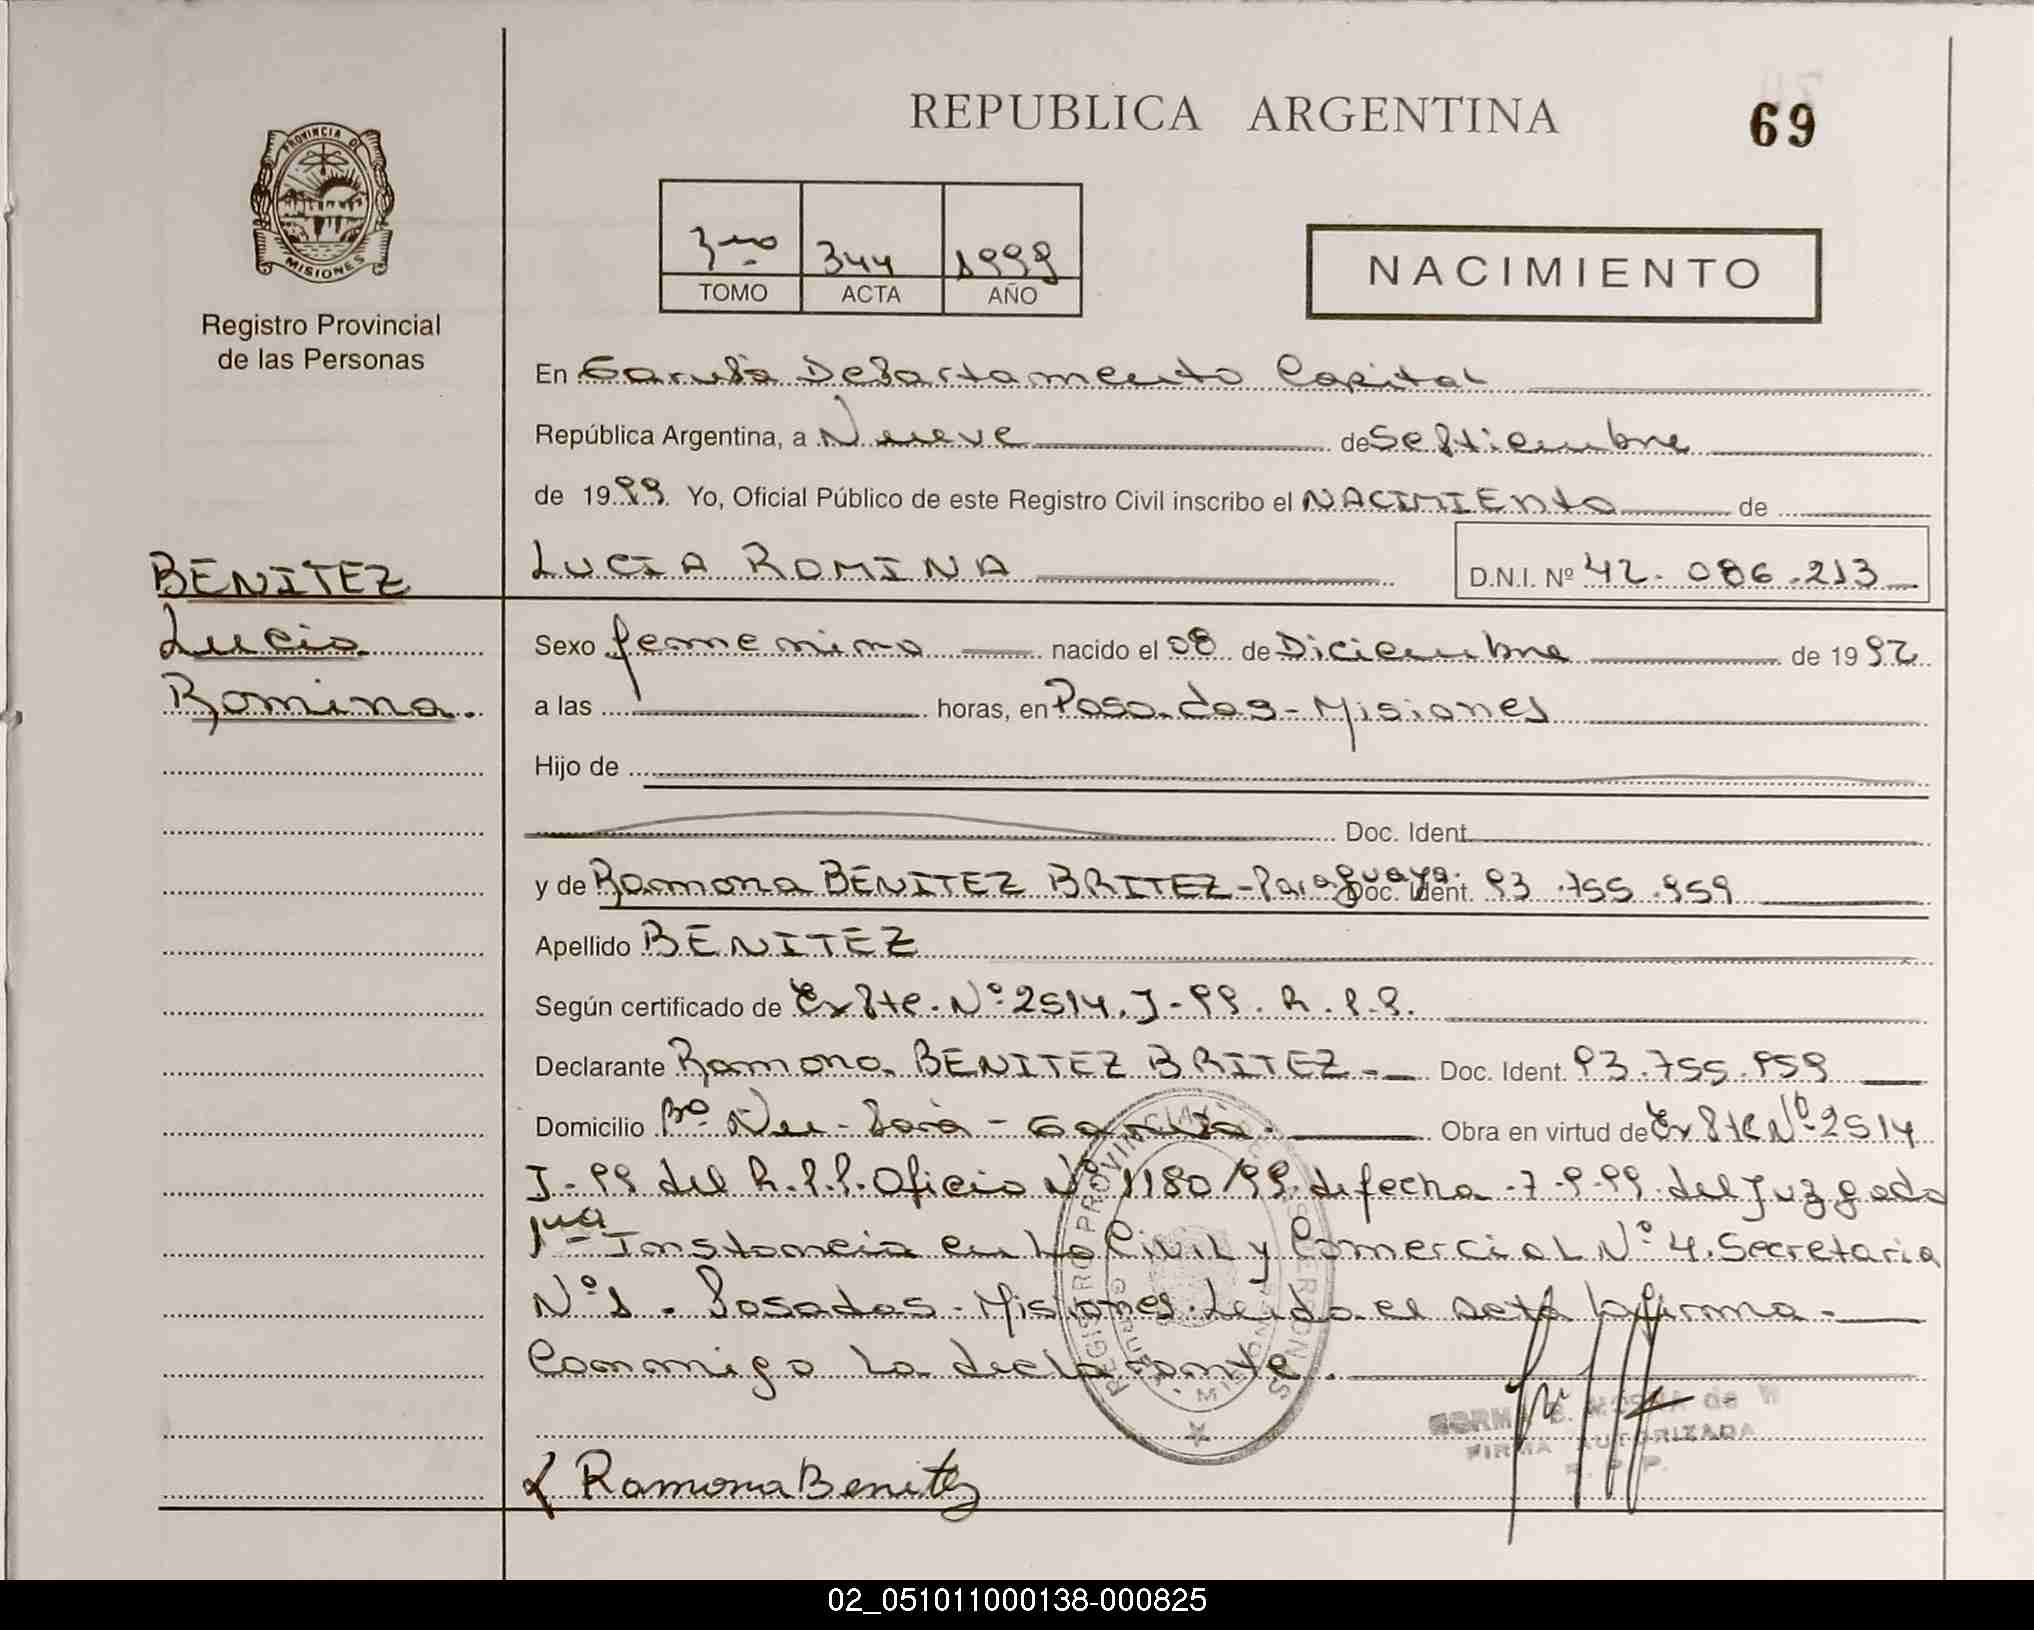 REPUBLICA ARGENTINA
69
PROVINCIA DE
MISIONES
Registro Provincial
de las Personas
3ro 344 1999
TOMO ACTA AÑO
NACIMIENTO
En Garupá Departamento Capital
República Argentina, a Nueve de Septiembre
de 1999. Yo, Oficial Público de este Registro Civil inscribo el NACIMIENto de
LUCIA ROMINA D.N.I. Nº 42.086.213
BENITEZ
Lucia
Romina.
Sexo femenino nacido el 08 de Diciembre de 1992
a las horas, en Posadas-Misiones
Hijo de
Doc. Ident.
y de Ramona BENITEZ BRITEZ-Paraguaya. Doc. Ident. 93.755.959
Apellido BENITEZ
Según certificado de Expte. Nº 2514. J-99. R.P.P.
Declarante Ramona BENITEZ BRITEZ- Doc. Ident. 93.755.959
Domicilio Bº Ñu-Porá - Garupá. Obra en virtud de Expte Nº 2514
J-99 del R.P.P. Oficio Nº 1180/99. de fecha -7-9-99. del Juzgado
1ra Instancia en lo Civil y Comercial Nº 4. Secretaria
Nº 1. Posadas-Misiones. Leida el acta la firma-
Conmigo la declarante.
REGISTRO PROVINCIAL DE LAS PERSONAS
GARUPA
MISIONES
FIRMA AUTORIZADA
R. P. P.
Ramona Benitez
02_051011000138-000825